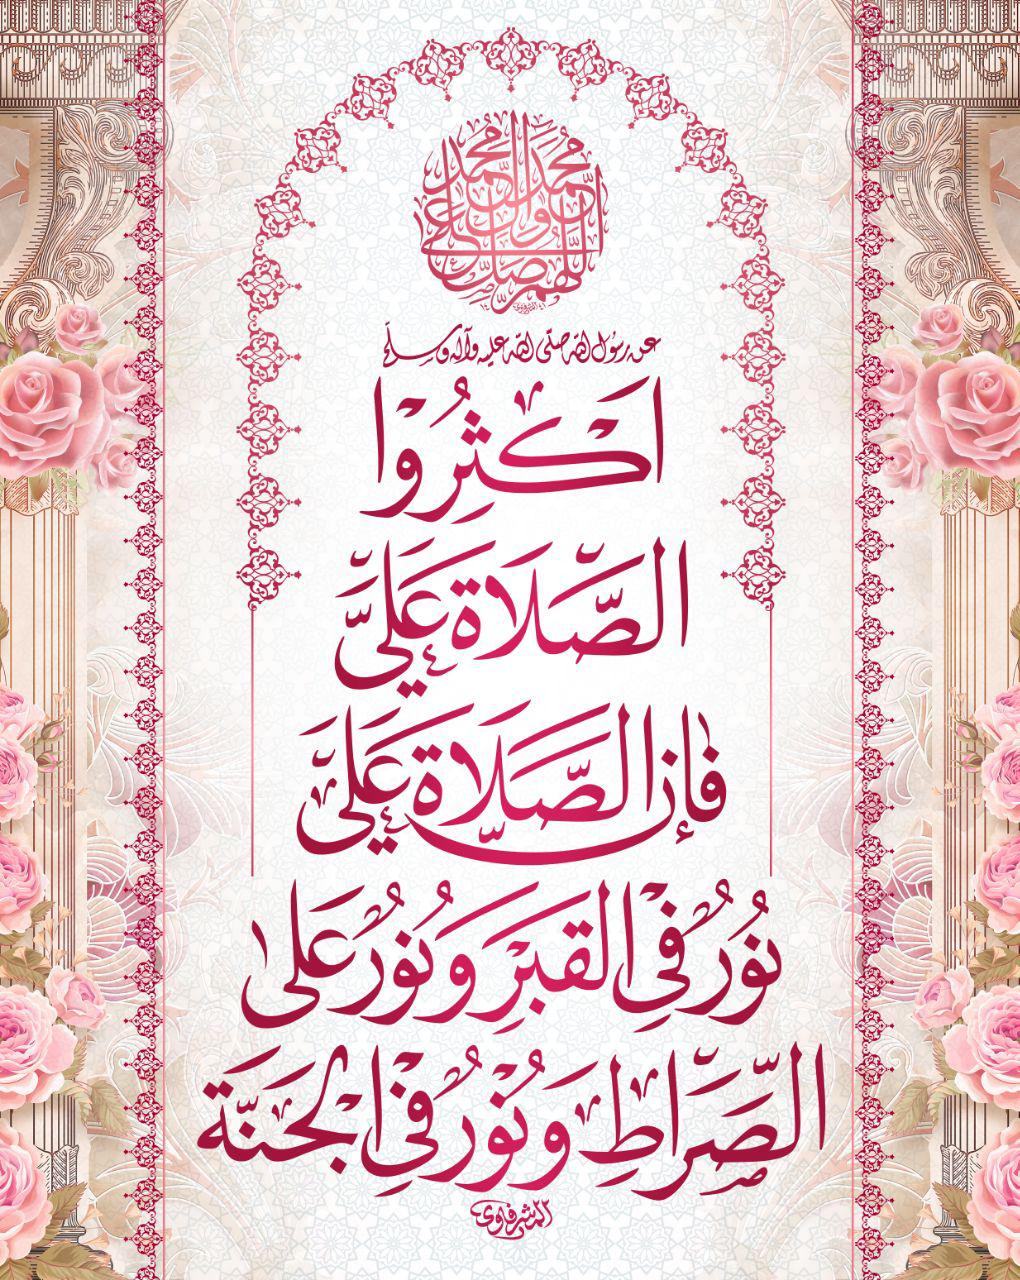 اللهم صل على محمد وال محمد
عن رسول الله صلى الله عليه وآله وسلم
اَكثِرُوا
الصَّلَاةَ عَلَيَّ
فإن الصَّلَاةَ عَلَيَّ
نُورٌ فِي القَبرِ وَنُورٌ عَلى
الصِّرَاطِ وَنُورٌ فِي الجَنَّة
المشرفاوي